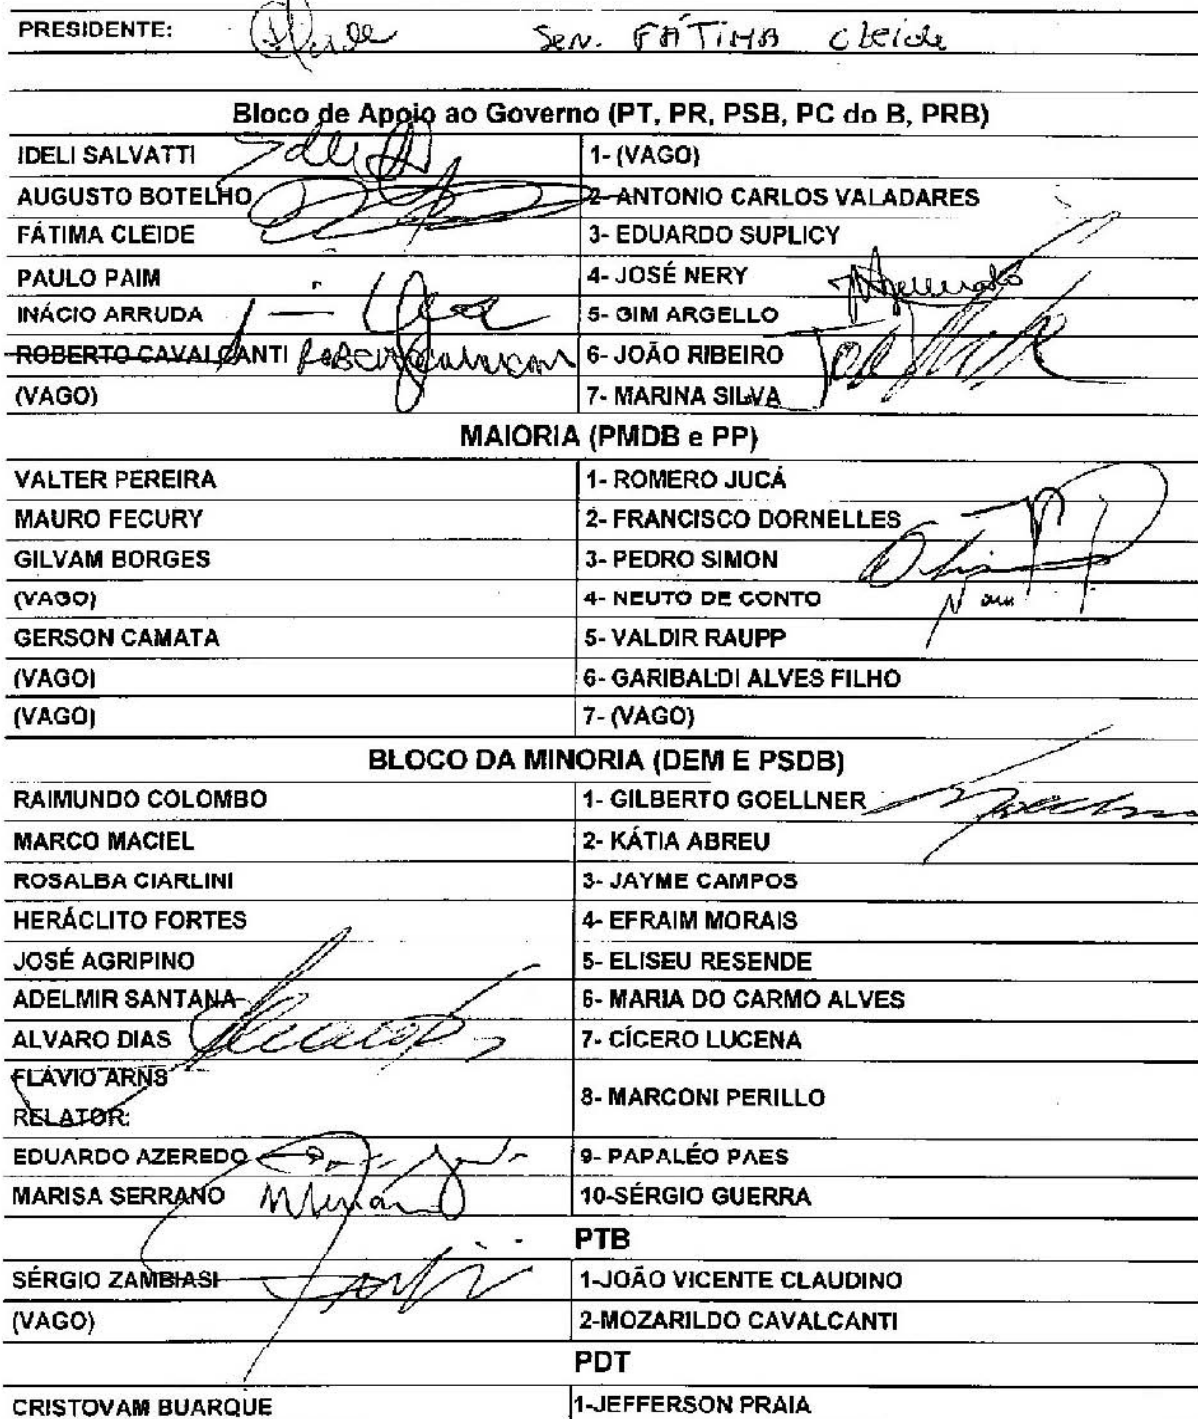 PRESIDENTE: Sen. FÁTIMA Cleide
Bloco de Apoio ao Governo (PT, PR, PSB, PC do B, PRB)
IDELI SALVATTI 1- (VAGO)
AUGUSTO BOTELHO 2- ANTONIO CARLOS VALADARES
FÁTIMA CLEIDE 3- EDUARDO SUPLICY
PAULO PAIM 4- JOSÉ NERY
INÁCIO ARRUDA 5- GIM ARGELLO
ROBERTO CAVALCANTI 6- JOÃO RIBEIRO
(VAGO) 7- MARINA SILVA
MAIORIA (PMDB e PP)
VALTER PEREIRA 1- ROMERO JUCÁ
MAURO FECURY 2- FRANCISCO DORNELLES
GILVAM BORGES 3- PEDRO SIMON
(VAGO) 4- NEUTO DE CONTO
GERSON CAMATA 5- VALDIR RAUPP
(VAGO) 6- GARIBALDI ALVES FILHO
(VAGO) 7- (VAGO)
BLOCO DA MINORIA (DEM E PSDB)
RAIMUNDO COLOMBO 1- GILBERTO GOELLNER
MARCO MACIEL 2- KÁTIA ABREU
ROSALBA CIARLINI 3- JAYME CAMPOS
HERÁCLITO FORTES 4- EFRAIM MORAIS
JOSÉ AGRIPINO 5- ELISEU RESENDE
ADELMIR SANTANA 6- MARIA DO CARMO ALVES
ALVARO DIAS 7- CÍCERO LUCENA
FLÁVIO ARNS
RELATOR: 8- MARCONI PERILLO
EDUARDO AZEREDO 9- PAPALÉO PAES
MARISA SERRANO 10-SÉRGIO GUERRA
PTB
SÉRGIO ZAMBIASI 1-JOÃO VICENTE CLAUDINO
(VAGO) 2-MOZARILDO CAVALCANTI
PDT
CRISTOVAM BUARQUE 1-JEFFERSON PRAIA